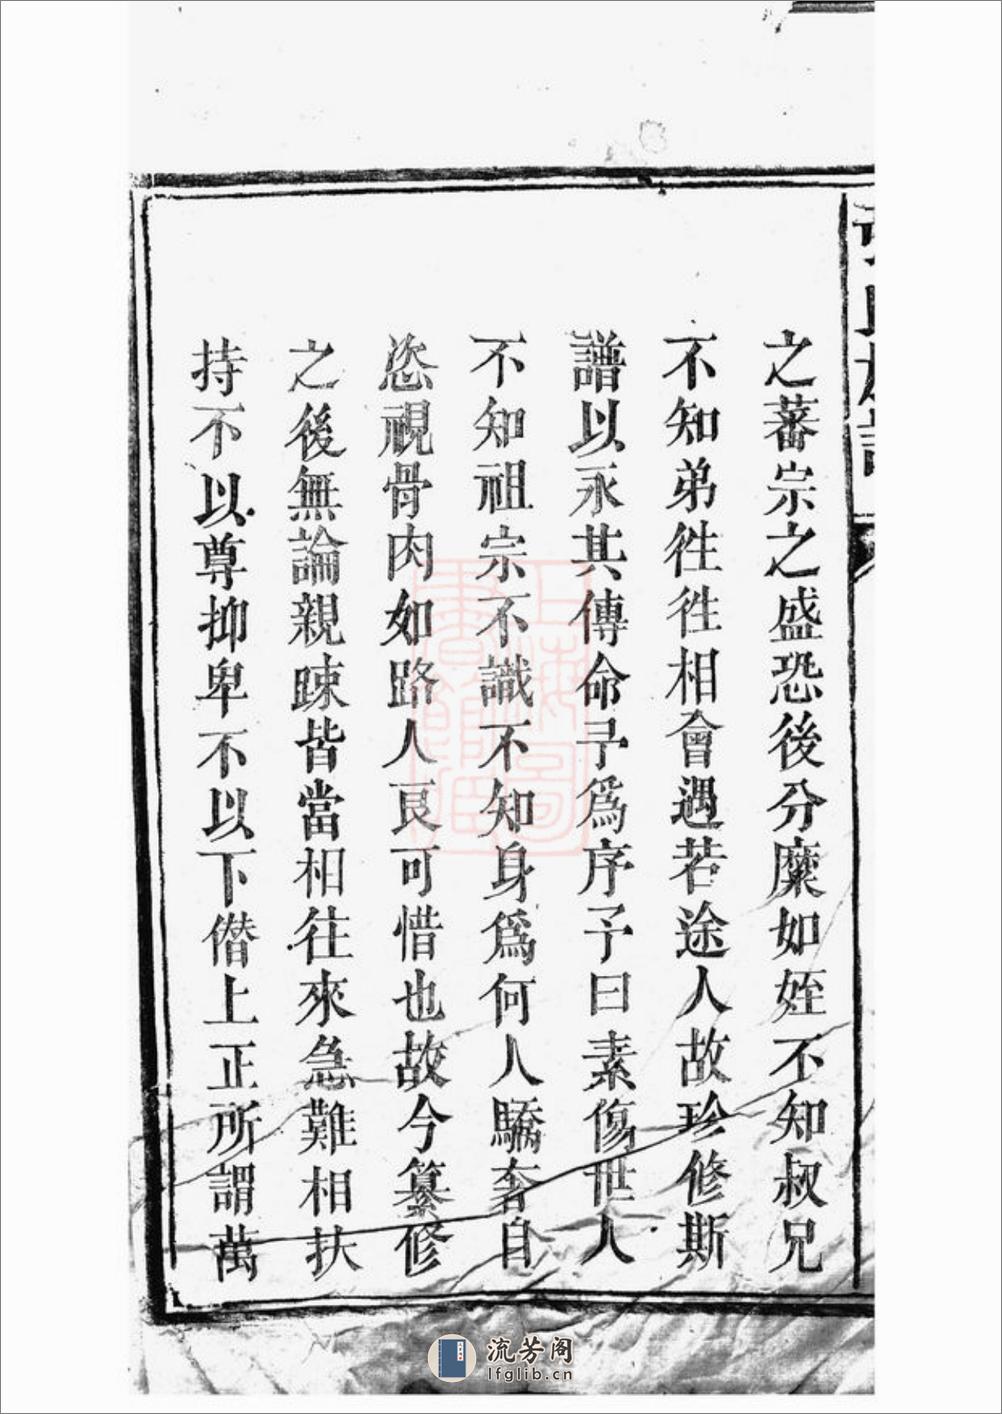 之蕃宗之盛恐後分糜如姪不知叔兄
不知弟徃徃相會遇若途人故珍修斯
譜以永其傳命予爲序予曰素傷世人
不知祖宗不識不知身爲何人驕奢自
恣視骨肉如路人良可惜也故今纂修
之後無論親踈皆當相往來急難相扶
持不以尊抑卑不以下僭上正所謂萬
上海圖書館藏
流芳阁
lfglib.cn